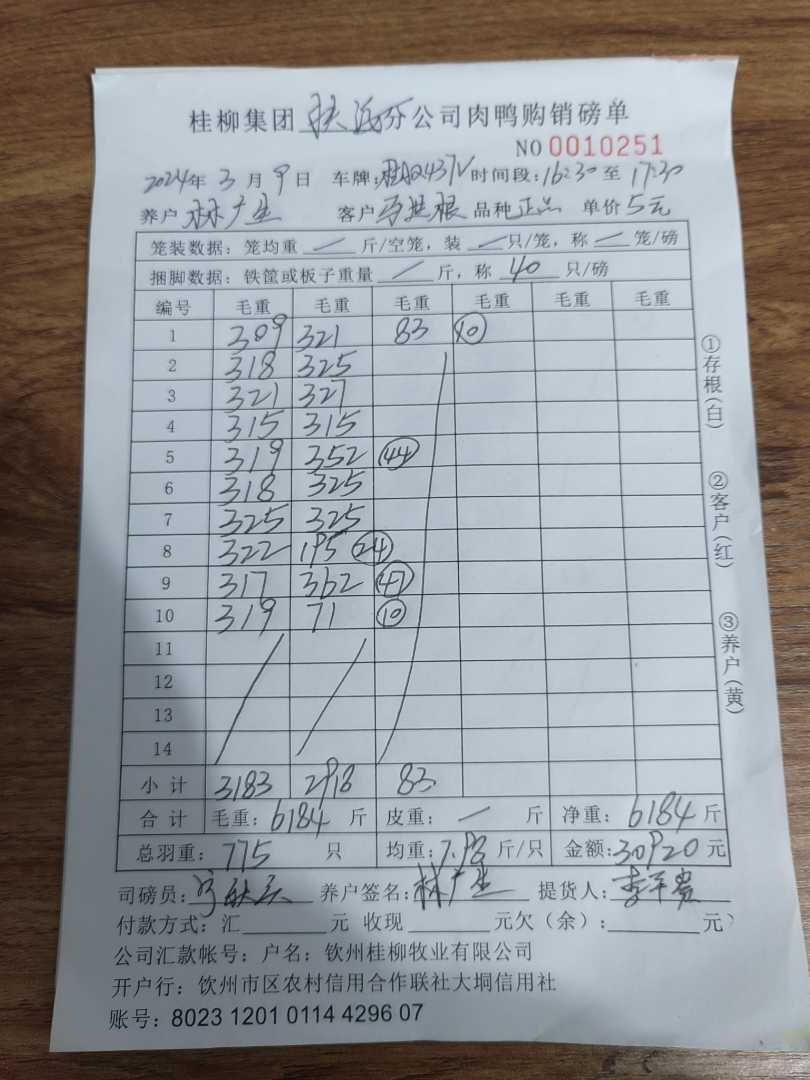 桂柳集团 分公司肉鸭购销磅单
NO 0010251
2024年 3 月 9 日 车牌: 时间段:16:30 至 17:30
养户 林广生 客户 品种 正品 单价 5元
笼装数据: 笼均重 / 斤/空笼, 装 / 只/笼, 称 / 笼/磅
捆脚数据: 铁筐或板子重量 / 斤, 称 40 只/磅
编号 毛重 毛重 毛重 毛重 毛重 毛重
1 309 321 83 ⑩
2 318 325
3 321 327
4 315 315
5 319 352 ㊹
6 318 325
7 325 325
8 322 195 ㉔
9 317 362
10 319 71 ⑩
11
12
13
14
小计 3183 2918 83
合计 毛重: 6184 斤 皮重: / 斤 净重: 6184 斤
总羽重: 775 只 均重: 7.98 斤/只 金额: 30920 元
司磅员: 养户签名: 林广生 提货人: 李平贵
付款方式: 汇 元 收现 元欠(余): 元
公司汇款帐号: 户名: 钦州桂柳牧业有限公司
开户行: 饮州市区农村信用合作联社大垌信用社
账号: 8023 1201 0114 4296 07
①存根(白)
②客户(红)
③养户(黄)